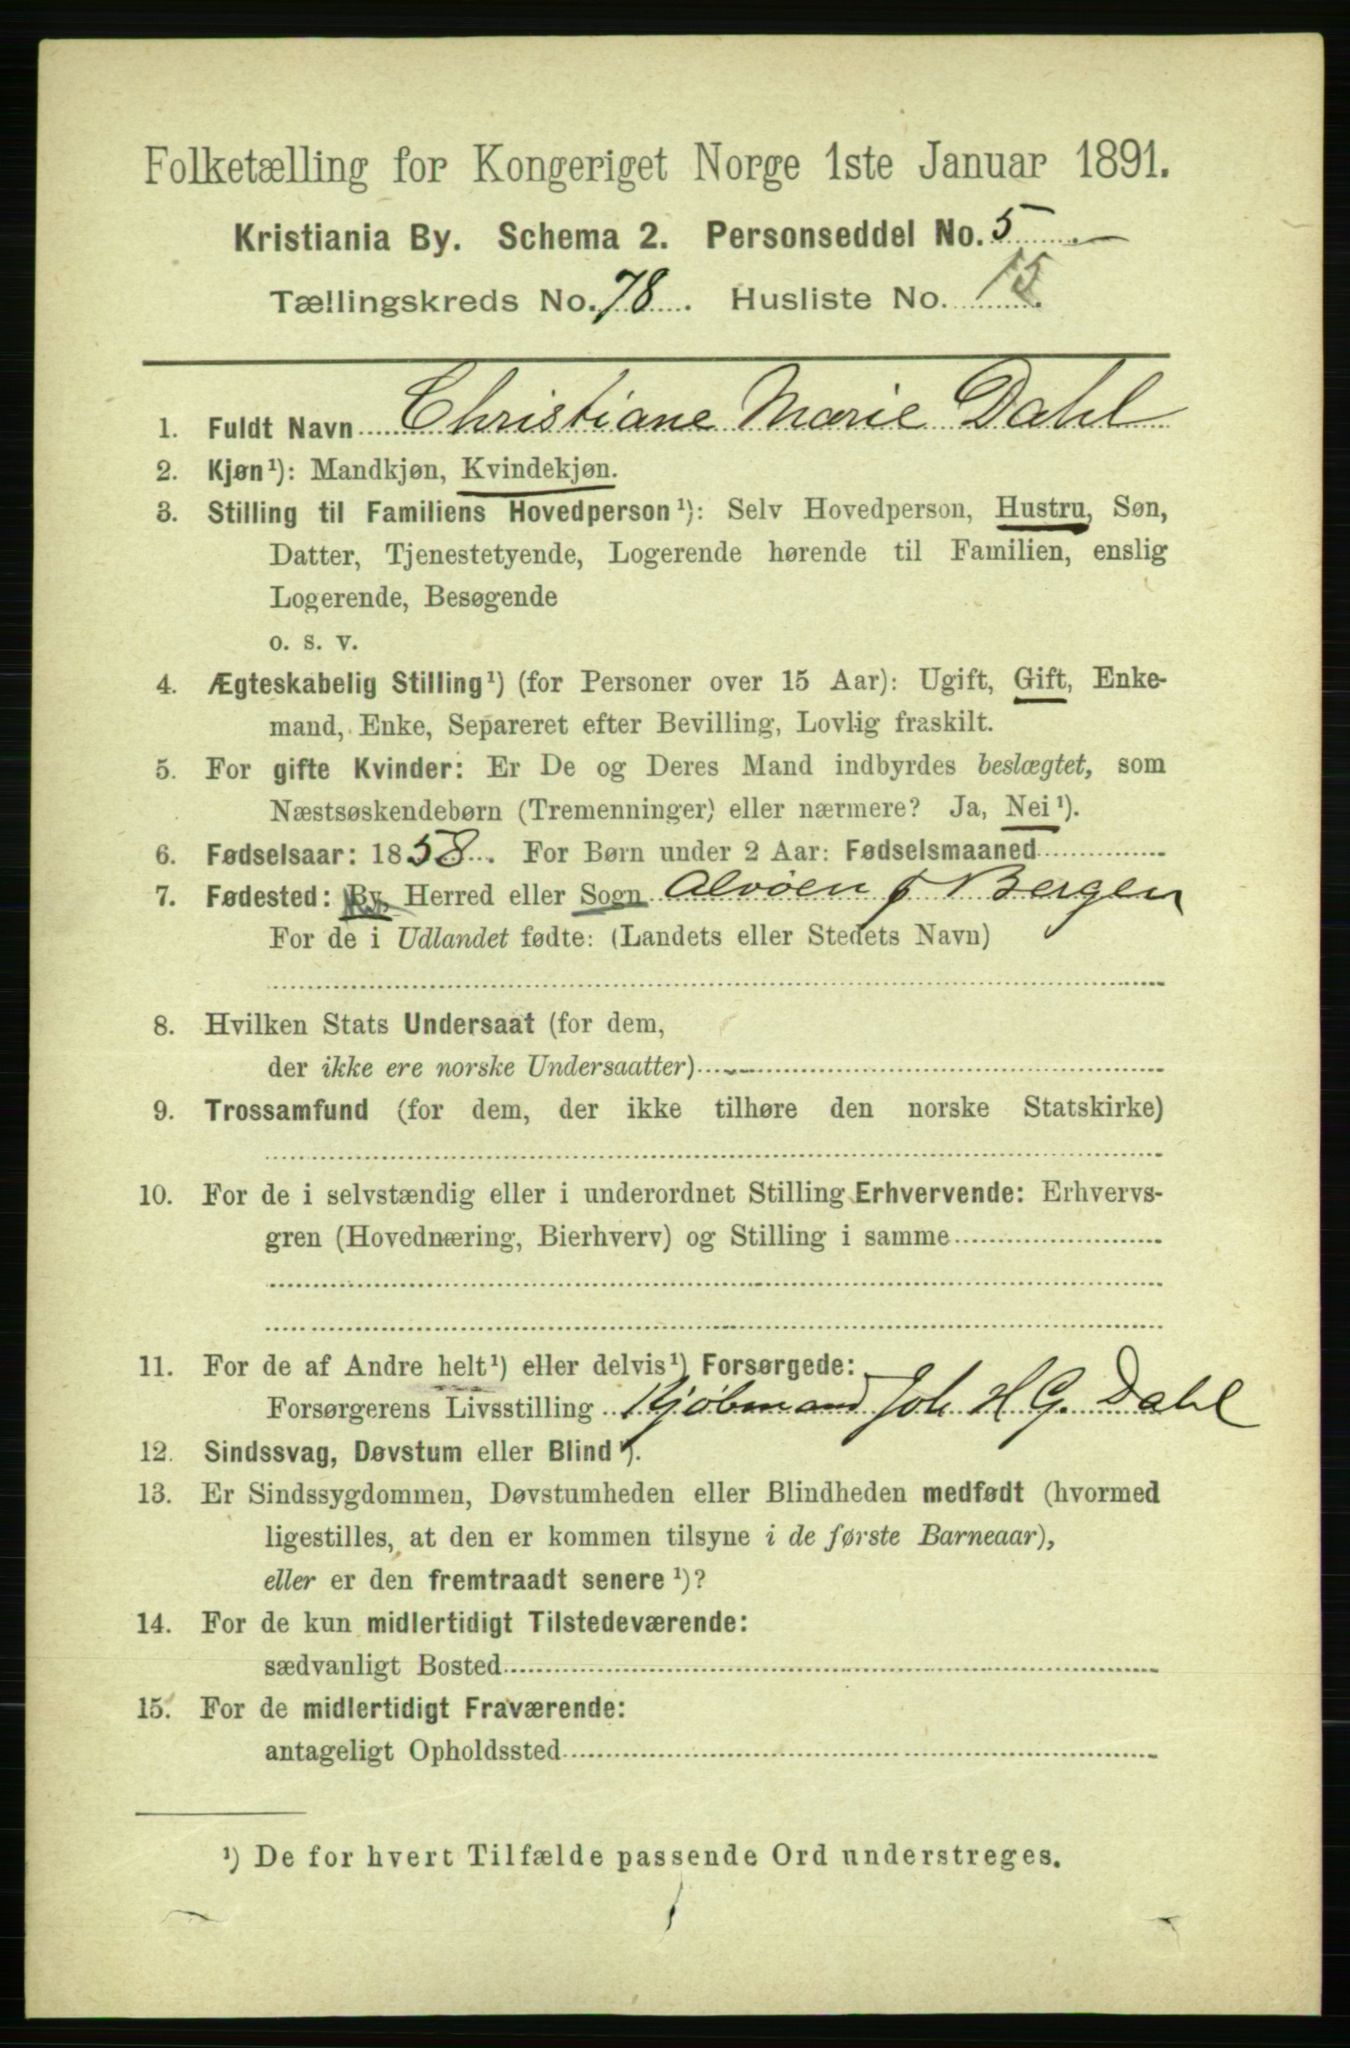 Folketælling for Kongeriget Norge 1ste Januar 1891.
Kristiania By. Schema 2. Personseddel No. 5
Tællingskreds No. 78. Husliste No. 15.
1. Fuldt Navn Christiane Marie Dahl
2. Kjøn¹): Mandkjøn, Kvindekjøn.
3. Stilling til Familiens Hovedperson¹): Selv Hovedperson, Hustru, Søn,
Datter, Tjenestetyende, Logerende hørende til Familien, enslig
Logerende, Besøgende
o. s. v.
4. Ægteskabelig Stilling¹) (for Personer over 15 Aar): Ugift, Gift, Enke-
mand, Enke, Separeret efter Bevilling, Lovlig fraskilt.
5. For gifte Kvinder: Er De og Deres Mand indbyrdes beslægtet, som
Næstsøskendebørn (Tremenninger) eller nærmere? Ja, Nei¹).
6. Fødselsaar: 1858. For Børn under 2 Aar: Fødselsmaaned
7. Fødested: By, Herred eller Sogn Alvøen Bergen
For de i Udlandet fødte: (Landets eller Stedets Navn)
8. Hvilken Stats Undersaat (for dem,
der ikke ere norske Undersaatter)
9. Trossamfund (for dem, der ikke tilhøre den norske Statskirke)
10. For de i selvstændig eller i underordnet Stilling Erhvervende: Erhvervs-
gren (Hovednæring, Bierhverv) og Stilling i samme
11. For de af Andre helt¹) eller delvis¹) Forsørgede:
Forsørgerens Livsstilling Kjøbmand Joh H G. Dahl
12. Sindssvag, Døvstum eller Blind¹).
13. Er Sindssygdommen, Døvstumheden eller Blindheden medfødt (hvormed
ligestilles, at den er kommen tilsyne i de første Barneaar),
eller er den fremtraadt senere¹)?
14. For de kun midlertidigt Tilstedeværende:
sædvanligt Bosted
15. For de midlertidigt Fraværende:
antageligt Opholdssted
¹) De for hvert Tilfælde passende Ord understreges.